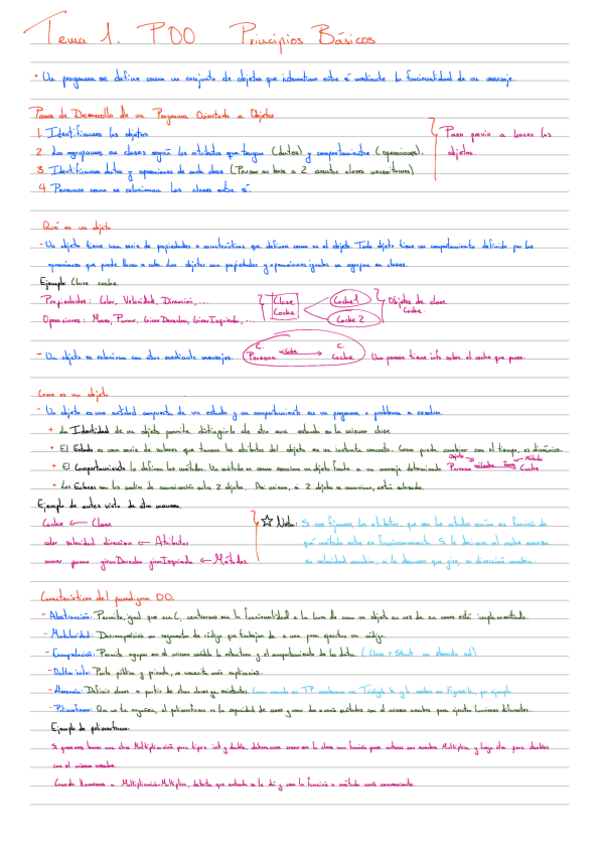 Tema 1. POO Principios Básicos
- Un programa se define como un conjunto de objetos que interactúan entre sí mediante la funcionalidad de un mensaje.
Pasos de Desarrollo de un Programa Orientado a Objetos
1. Identificamos los objetos
2. Los agrupamos en clases según los atributos que tengan (datos) y comportamientos (operaciones).
3. Identificamos datos y operaciones de cada clase (Pensar en base a 2 cuantas clases necesitamos)
4. Pensamos como se relacionan las clases entre sí.
Paso previo a hacer los
objetos.
Qué es un objeto
- Un objeto tiene una serie de propiedades o características que definen como es el objeto. Todo objeto tiene un comportamiento definido por las
operaciones que puede llevar a cabo. Los objetos con propiedades y operaciones iguales se agrupan en clases.
Ejemplo: Clase coche
Propiedades: Color, Velocidad, Dirección, ...
Operaciones: Mover, Parar, GirarDerecha, GirarIzquierda, ...
Clase
Coche
Coche 1
Coche 2
Objetos de clase
Coche.
- Un objeto se relaciona con otro mediante mensajes.
C. C.
Persona Coche
Una persona tiene info sobre el coche que posee.
Como es un objeto
- Un objeto es una entidad compuesta de un estado y un comportamiento en un programa o problema a resolver.
+ La Identidad de un objeto permite distinguirlo de otro aun estando en la misma clase
+ El Estado es una serie de valores que toman los atributos del objeto en un instante concreto. Como puede cambiar con el tiempo, es dinámico.
+ El Comportamiento lo definen los métodos. Un método es como reacciona un objeto frente a un mensaje determinado
Objeto Método
Persona Coche
- Los Enlaces son los medios de comunicación entre 2 objetos. Así mismo, si 2 objetos se comunican, están enlazados.
Ejemplo de antes visto de otra manera.
Coche ← Clase
color velocidad direccion ← Atributos
mover parar girarDerecha girarIzquierda ← Métodos
☆ Nota: Si nos fijamos, los atributos, que son los estados varían en función de
qué método esté en funcionamiento. Si le decimos al coche
su velocidad cambia, si le decimos que gire, su dirección cambia.
Características del paradigma OO.
- Abstracción: Permite, igual que en C, centrarnos en la funcionalidad a la hora de usar un objeto en vez de en como está implementado.
- Modularidad: Descomposición en segmentos de código que trabajan de a una para ejecutar un código.
- Encapsulación: Permite agrupar en el mismo módulo la estructura y el comportamiento de los datos. (Clase = Struct en)
- Parte pública y privada, se necesita más explicación.
- Herencia: Definir clases a partir de otras clases ya existentes.
- Polimorfismo: el polimorfismo es la capacidad de crear y usar dos o más métodos con el mismo nombre para ejecutar funciones diferentes.
Ejemplo de polimorfismo:
Si queremos hacer una clase Multiplicación para tipo int y double, deberíamos crear en la clase una función para enteros con nombre Multiplica y luego otra para doubles
con el mismo nombre.
Cuando llamemos a Multiplicación.Multiplica, detecta que entrada se le da y usa la función o método más conveniente.